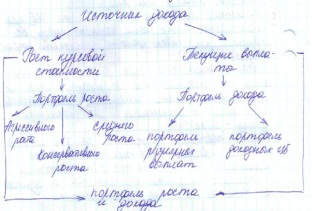 Источник дохода
Рост курсовой стоимости
Текущие выпла-
ты
Портфель роста
Портфель дохода
Агрессивного
роста
Консервативного
роста
среднего
роста
портфель
регулярных
выплат
портфель
доходных ЦБ
портфель роста
и дохода